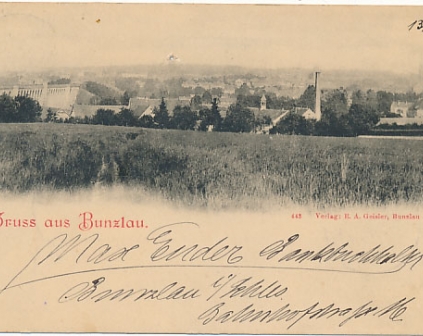 13
Gruss aus Bunzlau.
442 Verlag: E. A. Geisler, Bunzlau
Max
Bunzlau i/Schles
Bahnhofstraße 16